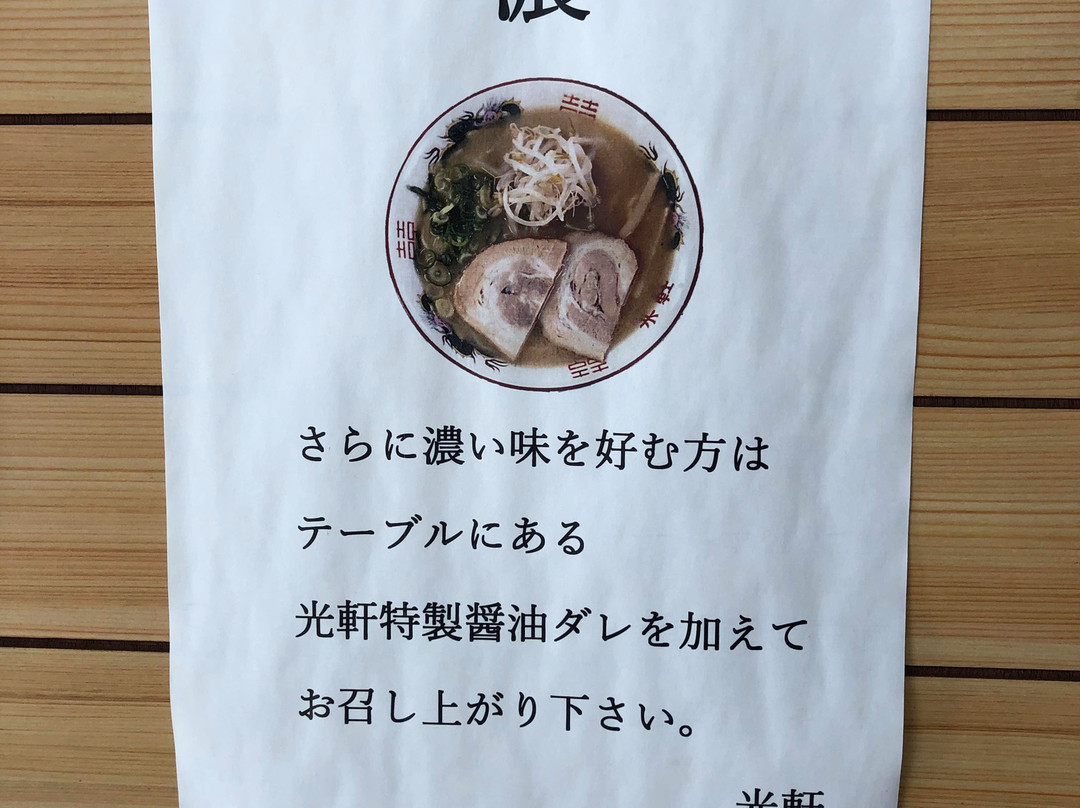 濃
さらに濃い味を好む方は
テーブルにある
光軒特製醤油ダレを加えて
お召し上がり下さい。
光軒